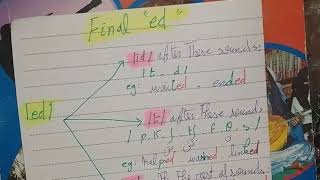 Final "ed"
/id/ after these sounds:
/t - d/
eg: wanted - ended
[ed]
/t/ after these sounds
/p. k. ʃ. tʃ. f. θ. s/
eg: helped washed linked
the rest of sounds.